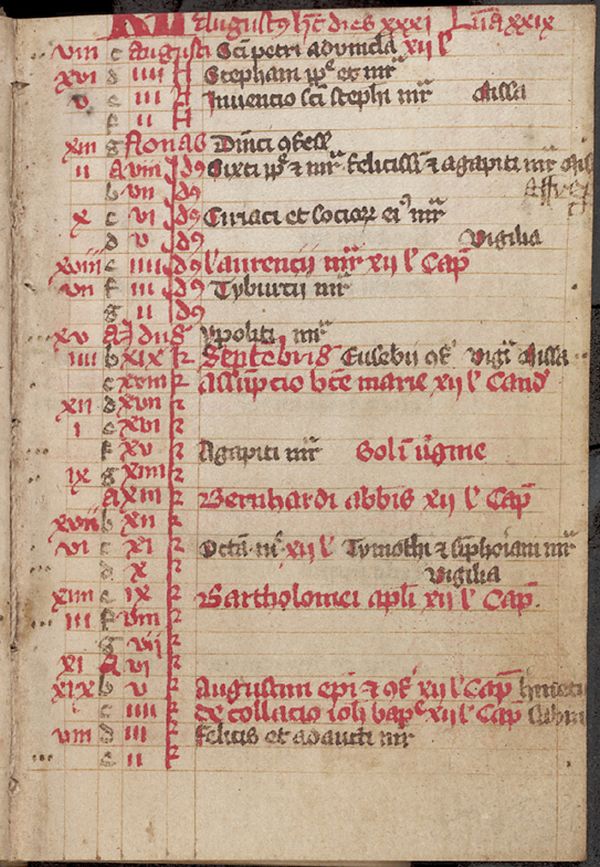 KL Augustus h't dies xxxi Luna xxix
viii c Augusti Sci petri advincla xii l'
xvi d iiii N Stephani pp et mr
v e iii N Invencio sci stephi mr Missa
f ii N
xiii g Nonas Dinci
ii A viii Id9 Sixti pp & mr felicissi & agapiti mr
b vii Id9
x c vi Id9 Ciriaci et socior ei9 mr
d v Id9 Vigilia
xviii e iiii Id9 Laurencii mr xii l' Cap
vii f iii Id9 Tyburtii mr
g ii Id9
xv A Idus Ypoliti mr
iiii b xix k Septebris Eusebii Missa
c xviii k Assupcio bte marie xii l' Cand
xii d xvii k
i e xvi k
f xv k Agapiti mr
ix g xiiii k
A xiii k Bernhardi abbis xii l' Cap
xvii b xii k
vi c xi k xii l' Tymothi & mr
d x k Vigilia
xiiii e ix k Bartholomei apli xii l' Cap
iii f viii k
g vii k
xi A vi k
xix b v k Augustini epi & xii l' Cap
c iiii k de collacio ioh bap xii l' Cap
viii d iii k felicis et adaucti mr
e ii k